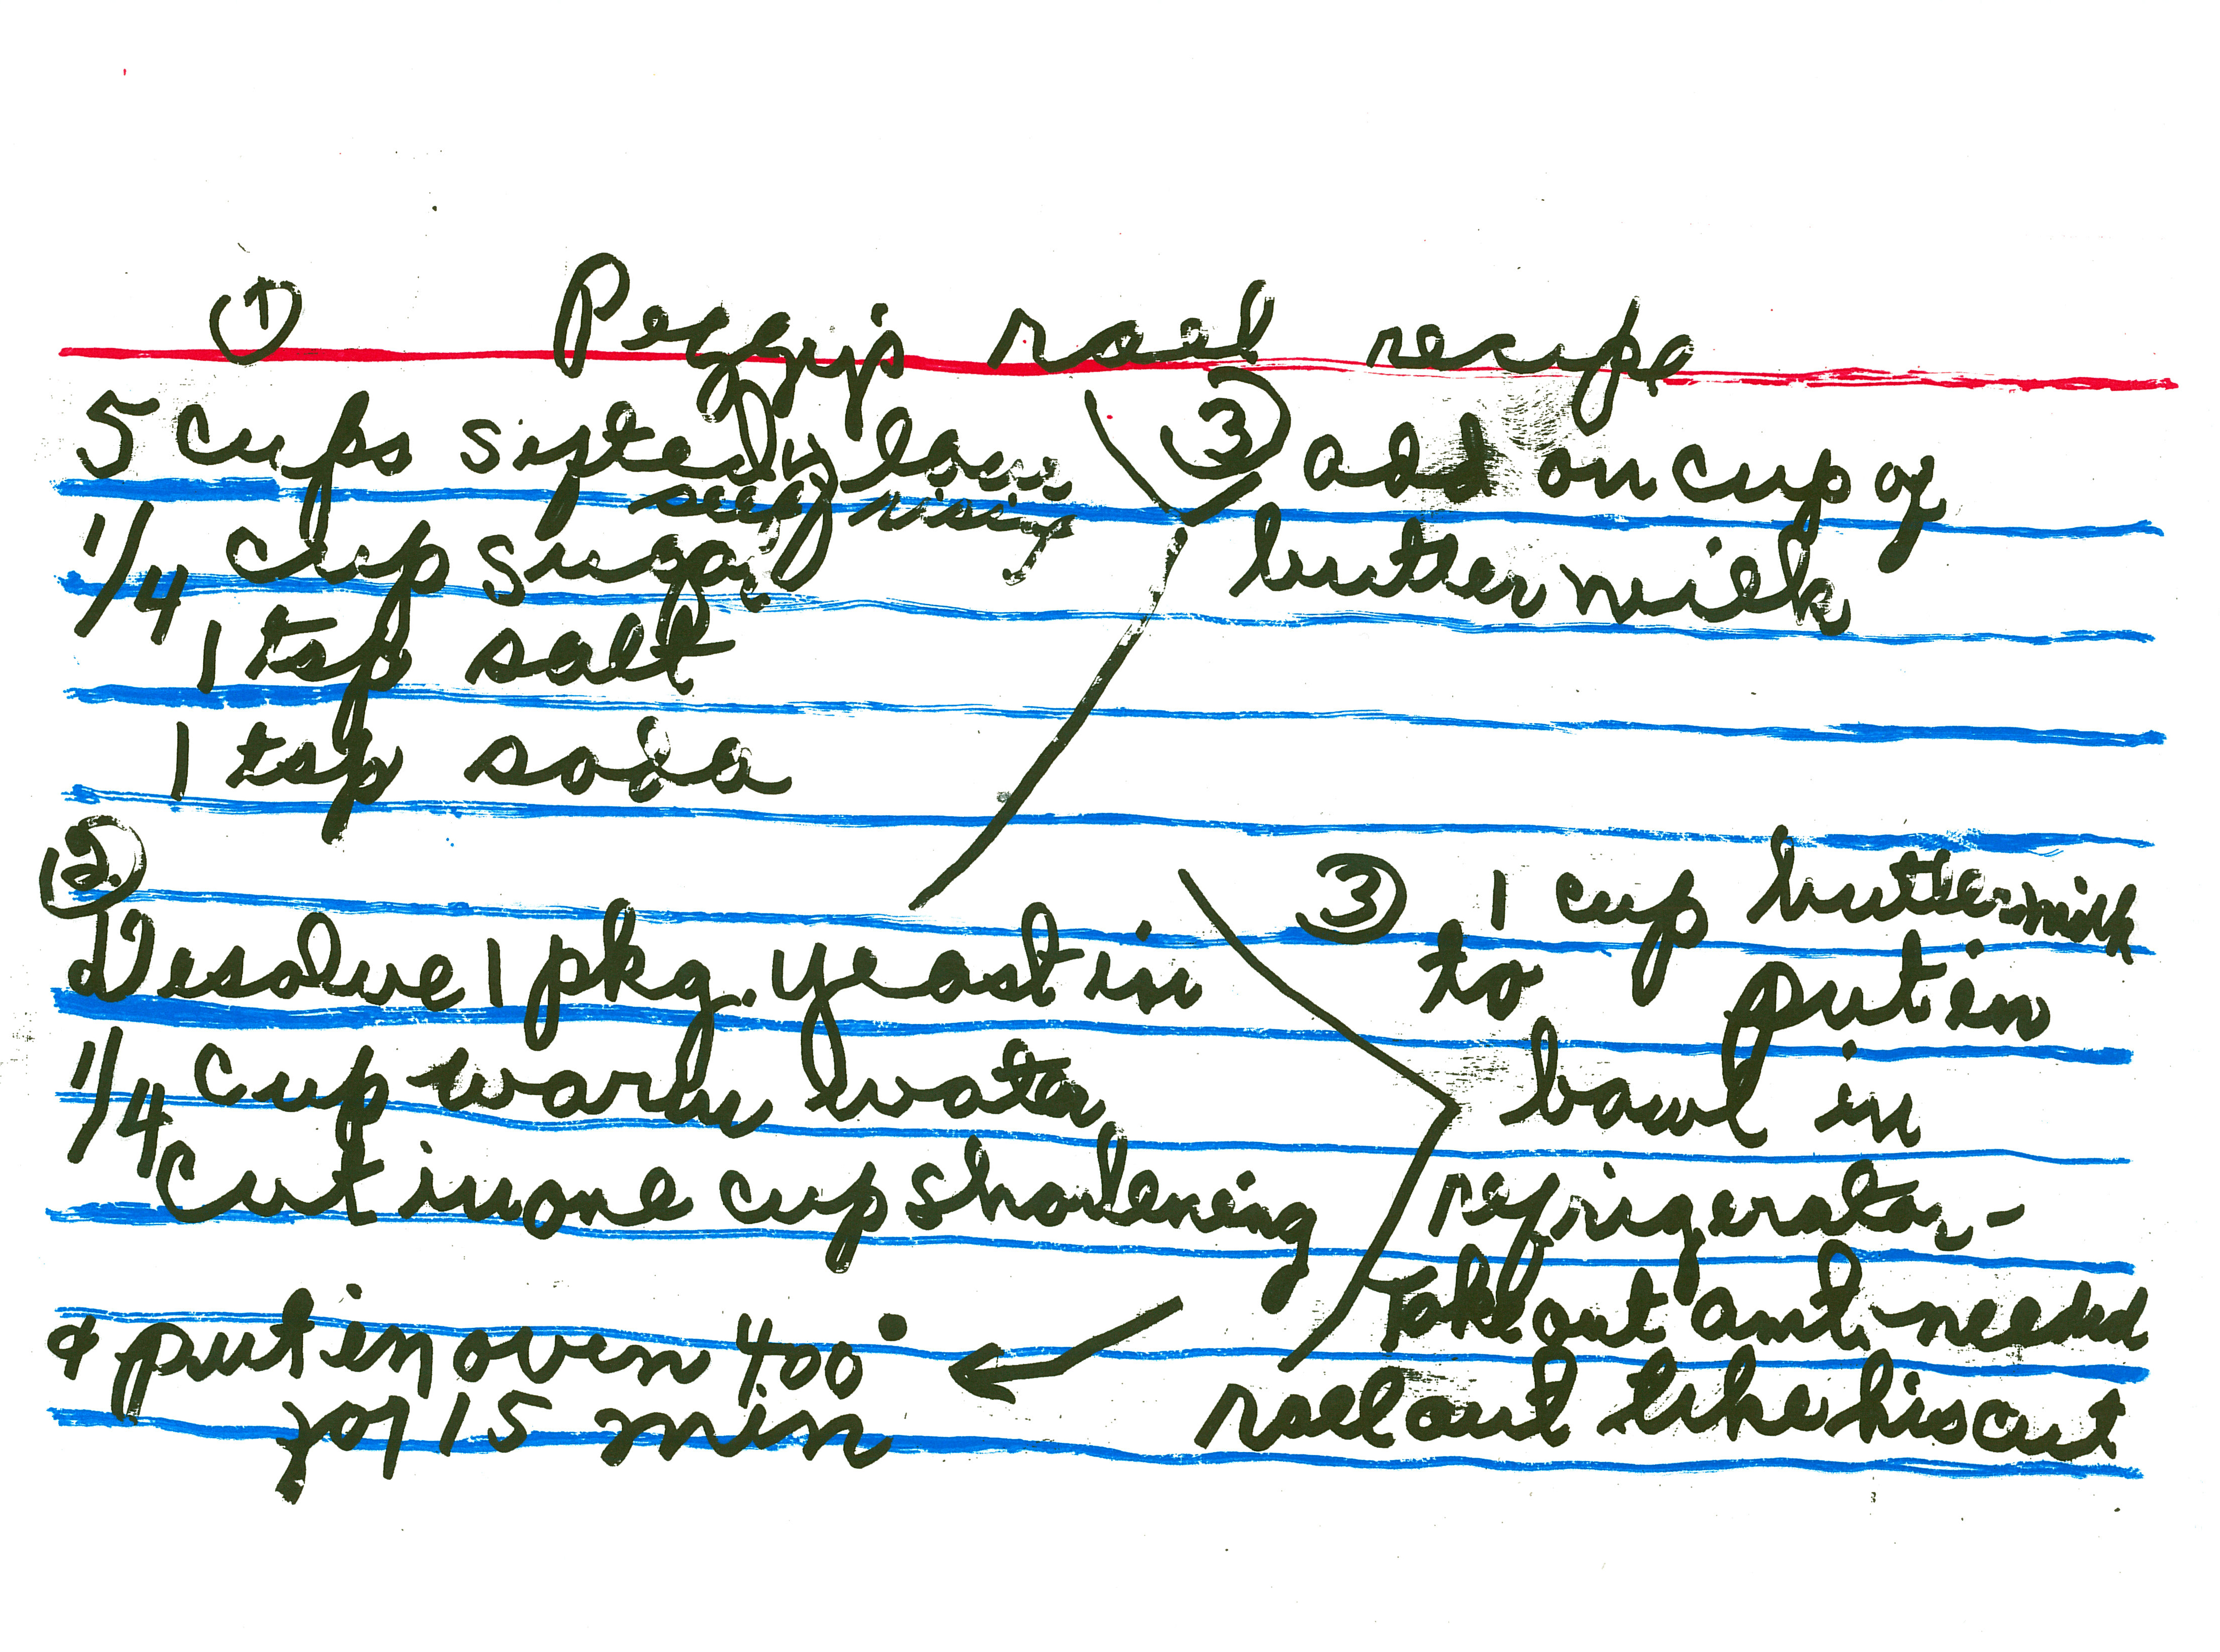 ① Peggy's roll recipe
5 cups sifted flour
self rising
1/4 cup sugar
1 tsp salt
1 tsp soda
③ add on cup of
buttermilk
②.
Desolve 1 pkg. yeast in
1/4 cup warm water
Cut in one cup shortening
③ 1 cup buttermilk
to put in
bowl in
refrigerator -
Take out amt. needed
roll out like biscut
& put in oven 400°
for 15 min